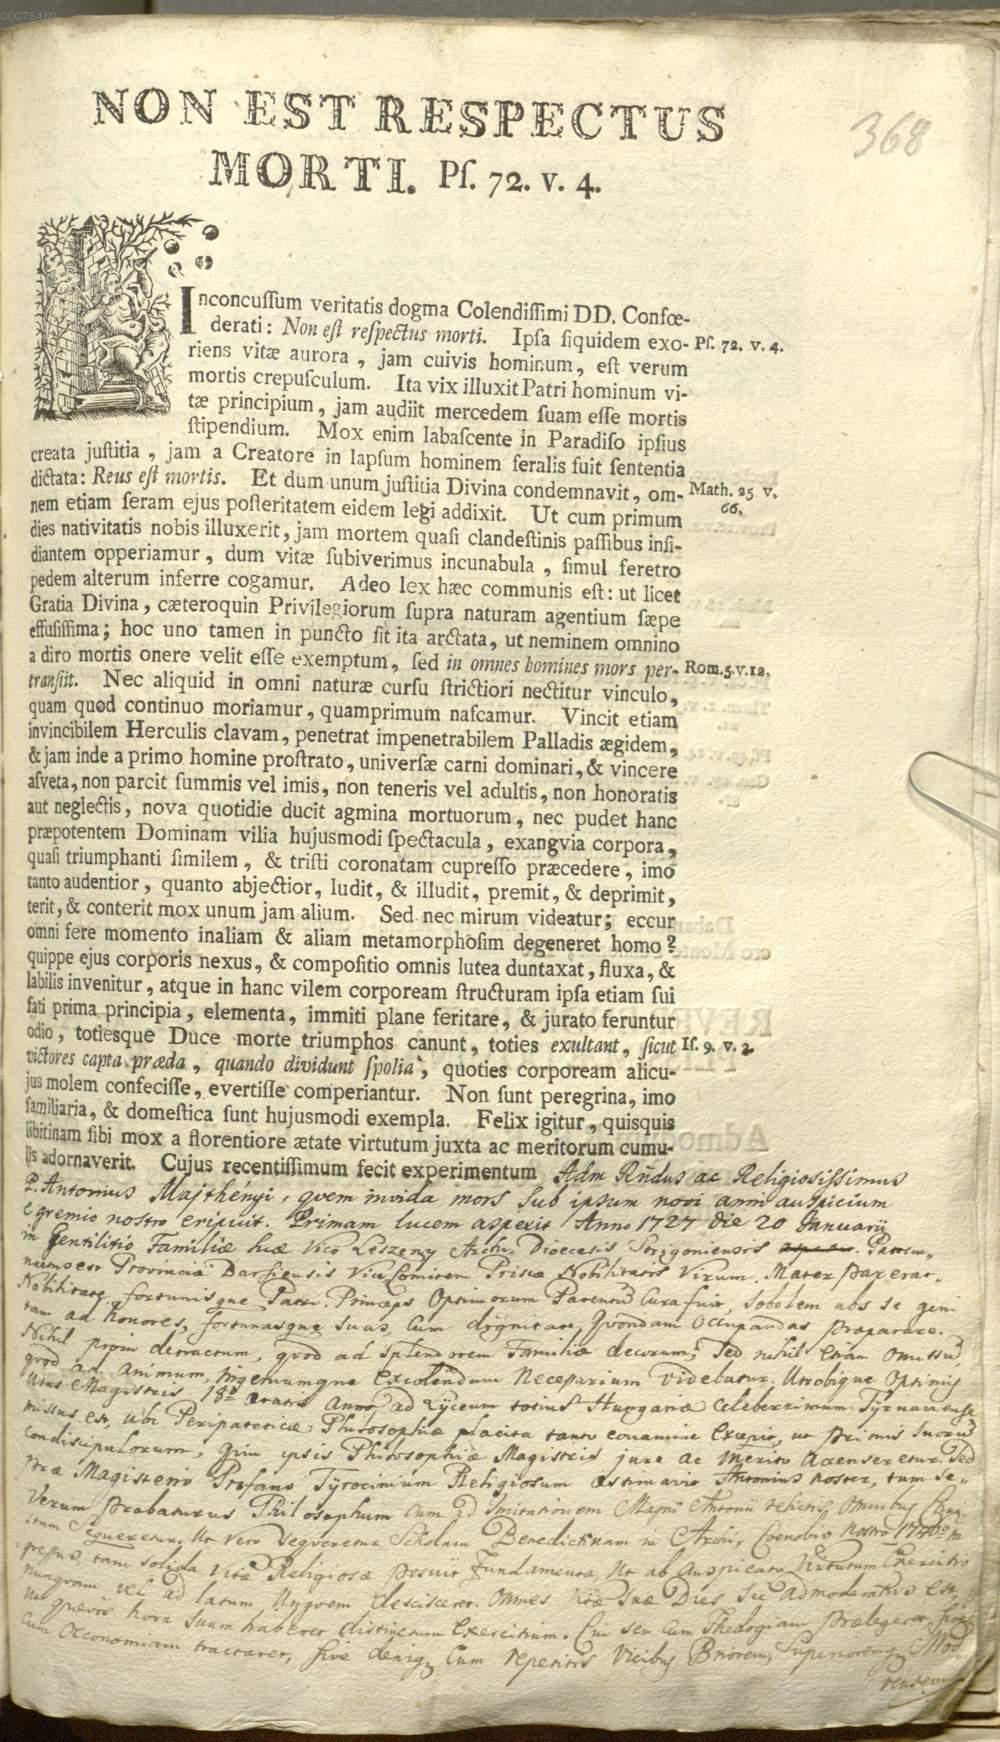 00075460
368
NON EST RESPECTUS
MORTI. Pſ. 72. v. 4.
Inconcuſſum veritatis dogma Colendiſſimi DD. Confœ-
derati: Non eſt reſpectus morti. Ipſa ſiquidem exo- Pſ. 72. v. 4.
riens vitæ aurora, jam cuivis hominum, eſt verum
mortis crepuſculum. Ita vix illuxit Patri hominum vi-
tæ principium, jam audiit mercedem ſuam eſſe mortis
ſtipendium. Mox enim labaſcente in Paradiſo ipſius
creata juſtitia, jam a Creatore in lapſum hominem feralis fuit ſententia
dictata: Reus eſt mortis. Et dum unum juſtitia Divina condemnavit, om- Math. 25 v.
66.
nem etiam ſeram ejus poſteritatem eidem legi addixit. Ut cum primum
dies nativitatis nobis illuxerit, jam mortem quaſi clandeſtinis paſſibus inſi-
diantem opperiamur, dum vitæ ſubiverimus incunabula, ſimul feretro
pedem alterum inferre cogamur. Adeo lex hæc communis eſt: ut licet
Gratia Divina, cæteroquin Privilegiorum ſupra naturam agentium ſæpe
effuſiſſima; hoc uno tamen in puncto ſit ita arctata, ut neminem omnino
a diro mortis onere velit eſſe exemptum, ſed in omnes homines mors per- Rom. 5. v. 12.
tranſiit. Nec aliquid in omni naturæ curſu ſtrictiori nectitur vinculo,
quam quod continuo moriamur, quamprimum naſcamur. Vincit etiam
invincibilem Herculis clavam, penetrat impenetrabilem Palladis ægidem,
& jam inde a primo homine proſtrato, univerſæ carni dominari, & vincere
aſveta, non parcit ſummis vel imis, non teneris vel adultis, non honoratis
aut neglectis, nova quotidie ducit agmina mortuorum, nec pudet hanc
præpotentem Dominam vilia hujusmodi ſpectacula, exangvia corpora,
quaſi triumphanti ſimilem, & triſti coronatam cupreſſo præcedere, imo
tanto audentior, quanto abjectior, ludit, & illudit, premit, & deprimit,
terit, & conterit mox unum jam alium. Sed nec mirum videatur; eccur
omni fere momento inaliam & aliam metamorphoſim degeneret homo?
quippe ejus corporis nexus, & compoſitio omnis lutea duntaxat, fluxa, &
labilis invenitur, atque in hanc vilem corpoream ſtructuram ipſa etiam ſui
fati prima principia, elementa, immiti plane feritare, & jurato feruntur
odio, totiesque Duce morte triumphos canunt, toties exultant, ſicut Iſ. 9. v. 2.
victores capta præda, quando dividunt ſpolia, quoties corpoream alicu-
jus molem confeciſſe, evertiſſe comperiantur. Non ſunt peregrina, imo
familiaria, & domeſtica ſunt hujusmodi exempla. Felix igitur, quisquis
libitinam ſibi mox a florentiore ætate virtutum juxta ac meritorum cumu-
lis adornaverit. Cujus recentiſſimum fecit experimentum Adm Rndus ac Religiosissimus
P. Antonius Majthényi, qvem invida mors sub ipsum novi anni auspicium
e gremio nostro eripuit. Primam lucem aspexit Anno 1727 die 20 Januarij
in Gentilitio Familiæ suæ Vico Leszeny Archi Dioecesis Strigoniensis
Provinciæ Barsiensis Vice Comitem Priscæ Nobilitatis Virum. Mater par erat
Nobilitate, fortunisque Patri. Princeps Optimorum Parentum Cura fuit, sobolem abs se geni
tam ad honores, fortunasque suas, cum dignitate, qvondam occupandas præparare.
Nihil proin detractum, qvod ad splendorem Familiæ decorum, sed nihil etiam omissum,
qvod ad animum, ingeniumque excolendum necessarium videbatur. Utrobique optimis
usus Magistris 18 ætatis anno ad Lyceum totius Hungariæ celeberrimum Tyrnaviense
missus est, ubi Peripateticæ Philosophiæ placita tanto conamine excepit, ut primis suorum
condiscipulorum, qvin ipsis Philosophiæ Magistris jure ac merito accenseretur. Sed
Magisterio Profano Tyrocinium Religiosum æstimavit Antonius noster, tum se-
Verum probaturus Philosophum cum ad imitationem Magni Antonii relictis omnibus
seqveretur. Ut vero seqveretur Scholam Benedictinam in Archi Coenobio nostro
tam solida Vitæ Religiosæ posuit fundamenta, ut ab auspicato Virtutum Exercitio
nunqvam vel ad latum ungvem descisceret. Omnes vitæ suæ Dies sic admoderatus est,
ut qvævis hora suum haberet distinctum exercitium. Cui seu cum Theologiam prælegeret,
cum Oeconomiam tractaret, sive deniq cum repetitis vicibus Priorem, Superioremq